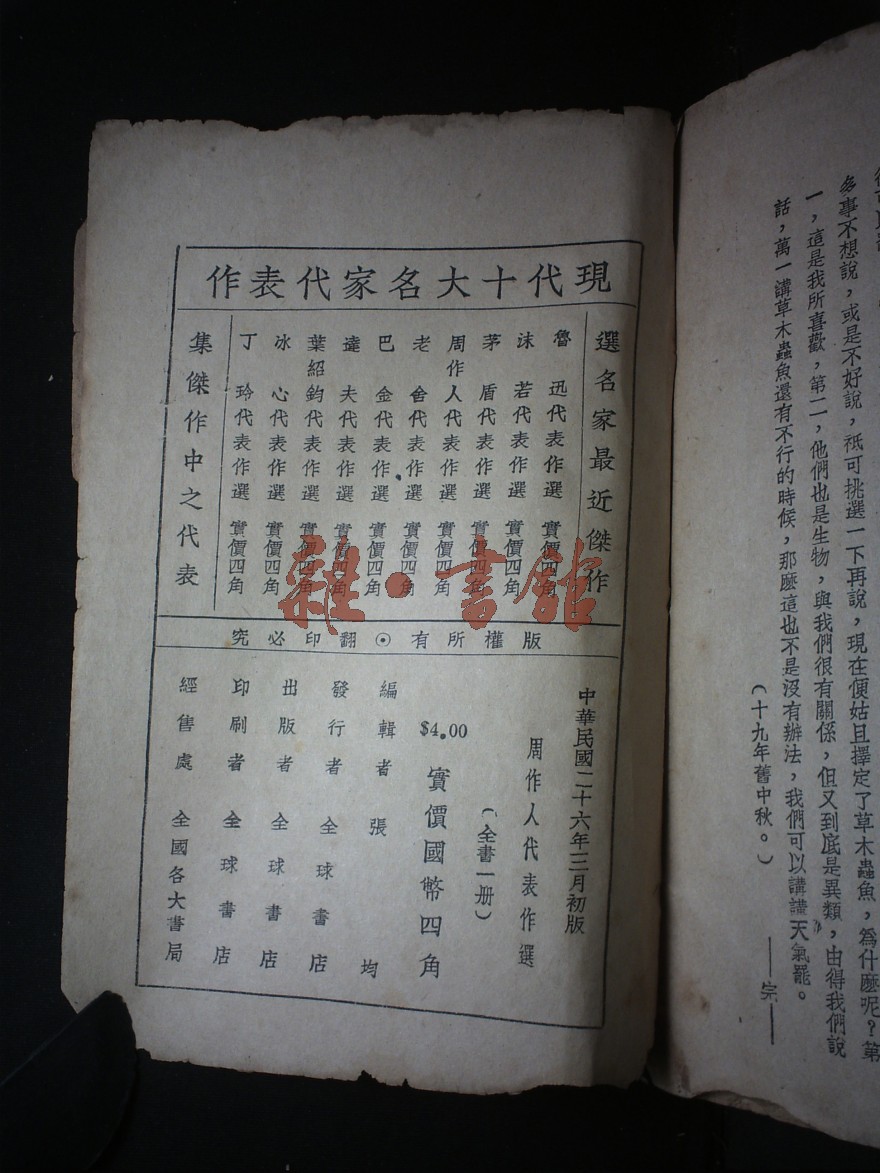 多事不想說，或是不好說，祇可挑選一下再說，現在便姑且擇定了草木蟲魚，爲什麼呢？第
一，這是我所喜歡，第二，他們也是生物，與我們很有關係，但又到底是異類，由得我們說
話，萬一講草木蟲魚還有不行的時候，那麼這也不是沒有辦法，我們可以講講天氣罷。
（十九年舊中秋。）
——完——
現代十大名家代表作
選名家最近傑作
魯迅代表作選 實價四角
沫若代表作選 實價四角
茅盾代表作選 實價四角
周作人代表作選 實價四角
老舍代表作選 實價四角
巴金代表作選 實價四角
達夫代表作選 實價四角
葉紹鈞代表作選 實價四角
冰心代表作選 實價四角
丁玲代表作選 實價四角
集傑作中之代表
版權所有⊙翻印必究
中華民國二十六年三月初版
周作人代表作選
（全書一册）
$4.00 實價國幣四角
編輯者 張均
發行者 全球書店
出版者 全球書店
印刷者 全球書店
經售處 全國各大書局
雜·書館